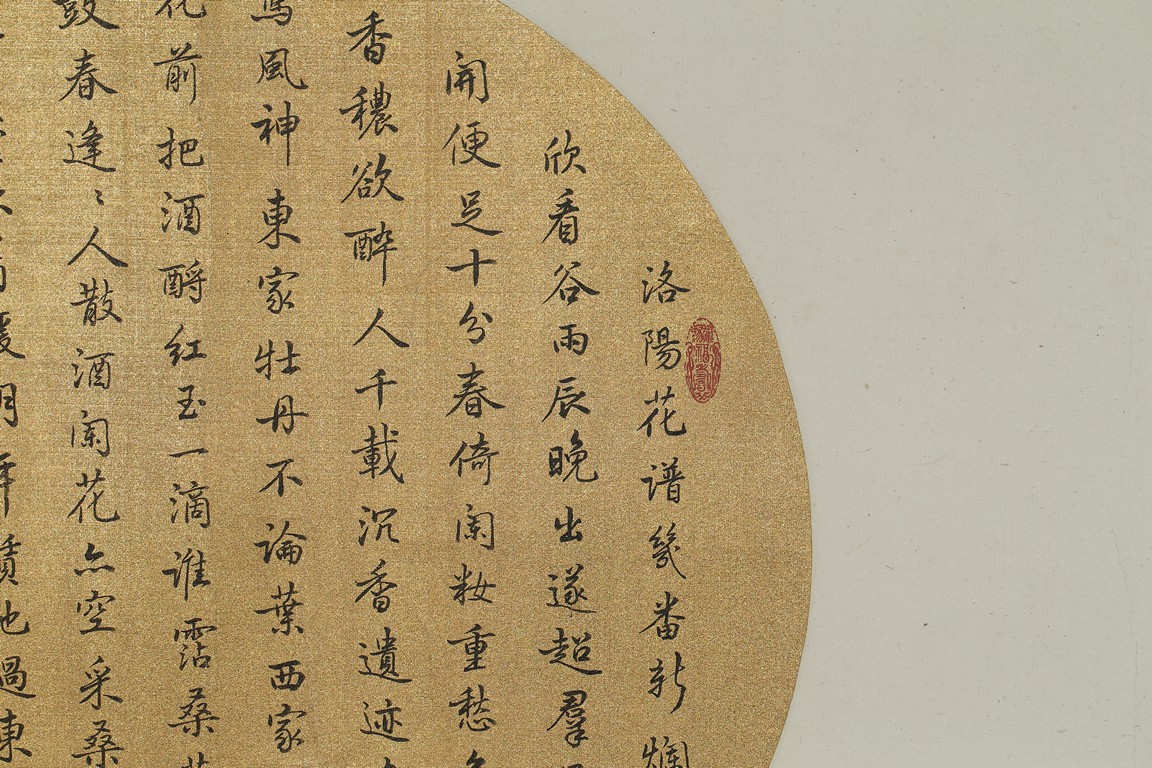 洛陽花譜幾番新爛
欣看谷雨辰晚出遂超羣
開便足十分春倚闌妝重愁
香穠欲醉人千載沉香遺迹
風神東家牡丹不論葉西家
花前把酒酹紅玉一滴誰霑桑
鼓春逢〻人散酒闌花亦空采桑
煖明年續地過東